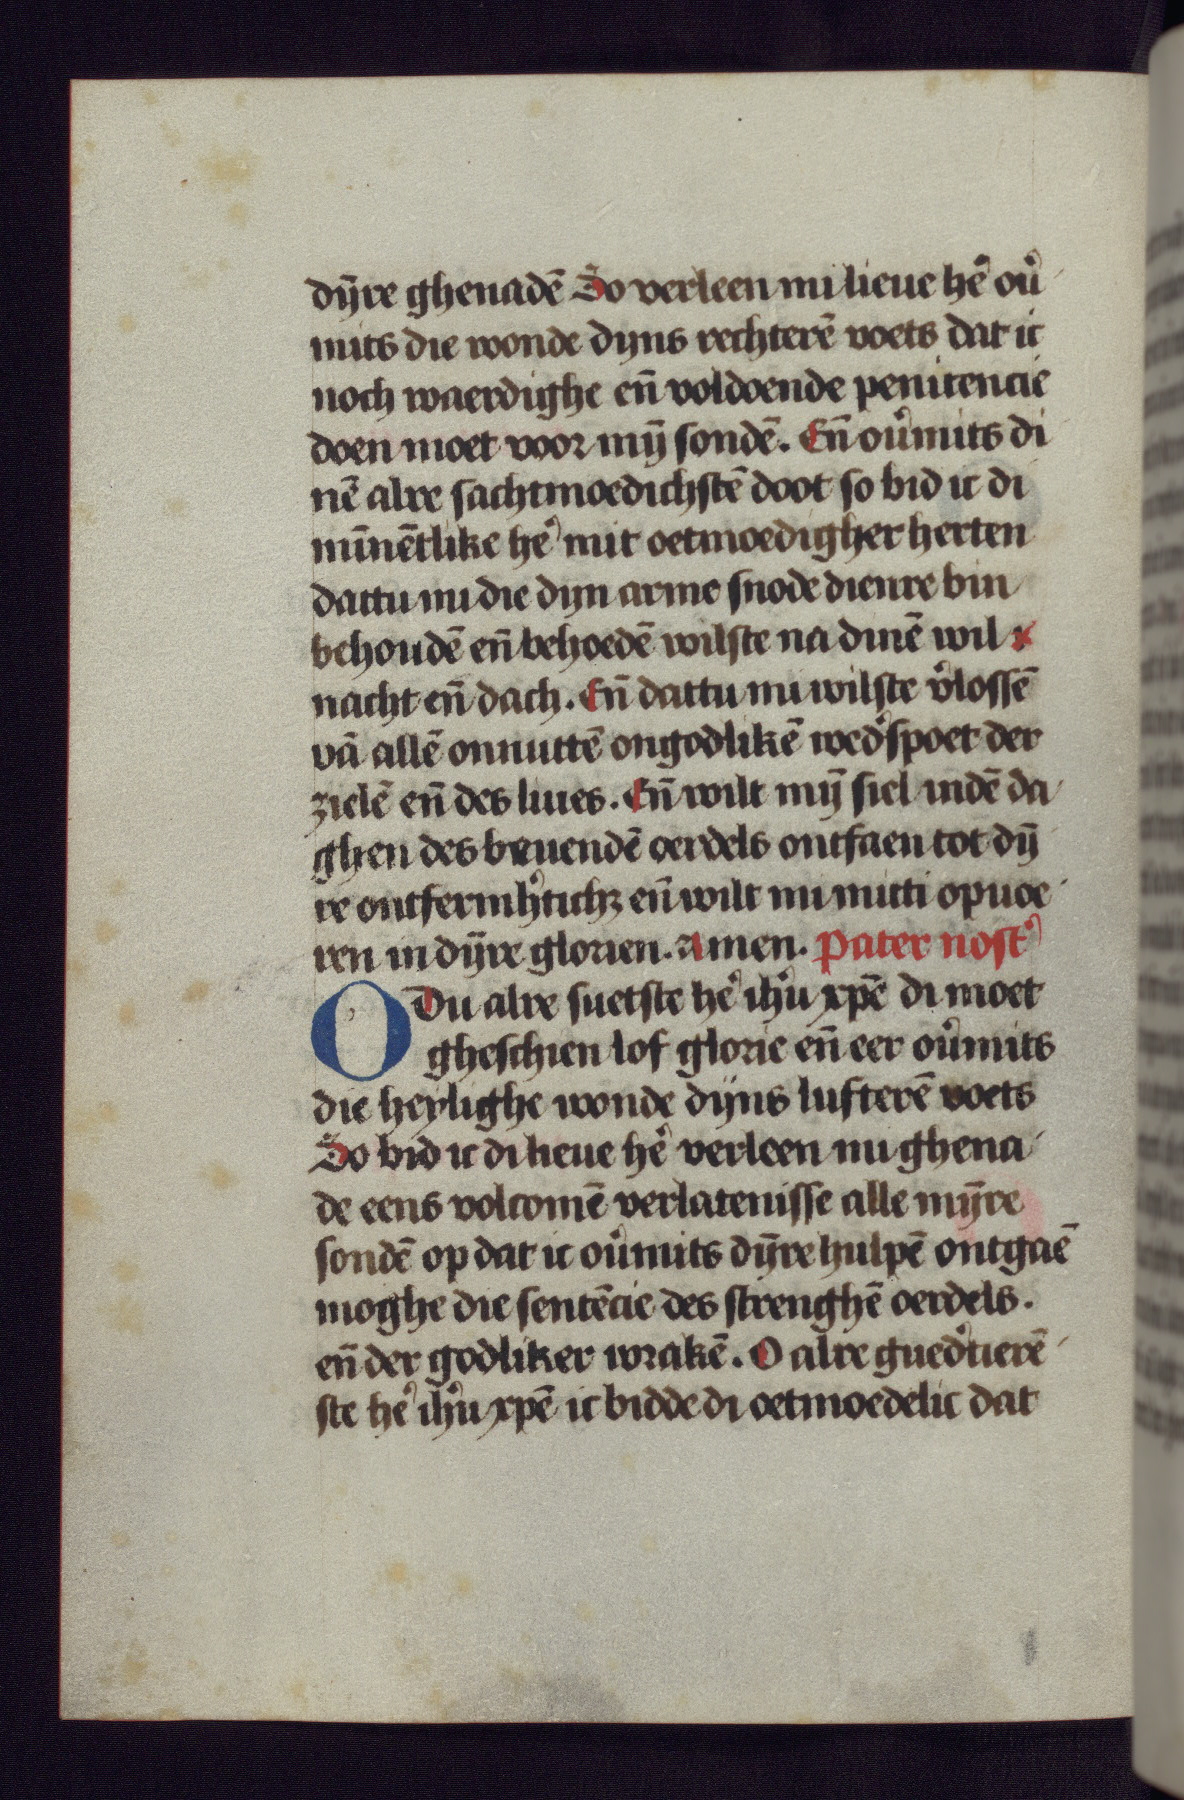 dȳre ghenadē So verleen mi lieue hē ou̓
mits die wonde dyns rechterē voets dat ic
noch waerdighe en̄ voldoende penitencie
doen moet voor mȳ sondē. En̄ ou̓mits di
nē alre sachtmoedichstē doot so bid ic di
mīnētlike hē mit oetmoedigher herten
dattu mi die dyn arme snode dienre bin
behoudē en̄ behoedē wilste na dinē wil
nacht en̄ dach. En̄ dattu mi wilste v̓lossē
vā allē onnuttē ongodlikē wed̓spoet der
zielē en̄ des liues. En̄ wilt mȳ siel indē da
ghen des beuendē oerdels ontfaen tot dȳ
re ontfermh̓tichꝫ en̄ wilt mi mitti opuoe
ren in dȳre glorien. Amen. Pater nost̓
O Du alre suetste hē ih̓u xp̄e di moet
gheschien lof glorie en̄ eer ou̓mits
die heylighe wonde dyns lufterē voets
So bid ic di lieue hē verleen mi ghena
de eens volcomē verlatenisse alle mȳre
sondē op dat ic ou̓mits dȳre hulpē ontgaē
moghe die sentēcie des strenghē oerdels.
en̄ der godliker wrakē. O alre gued̓tierē
ste hē ih̓u xp̄e ic bidde di oetmoedelic dat